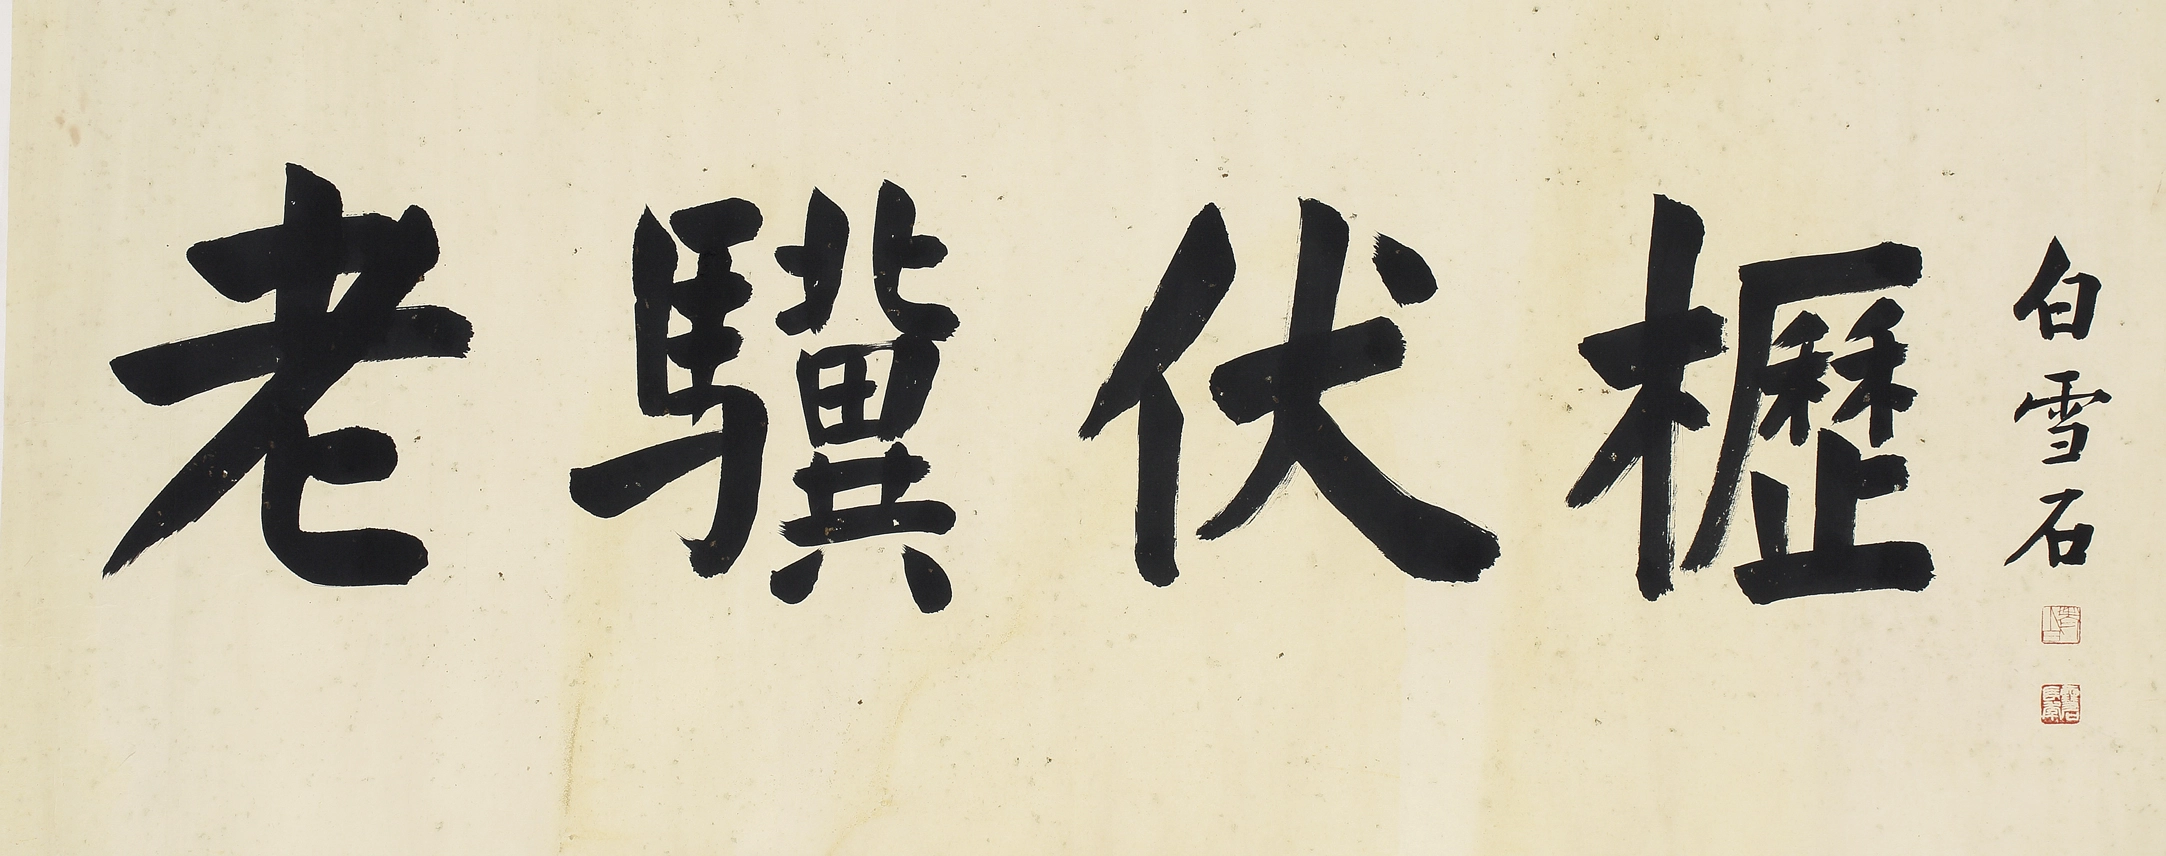 老驥伏櫪
白雪石